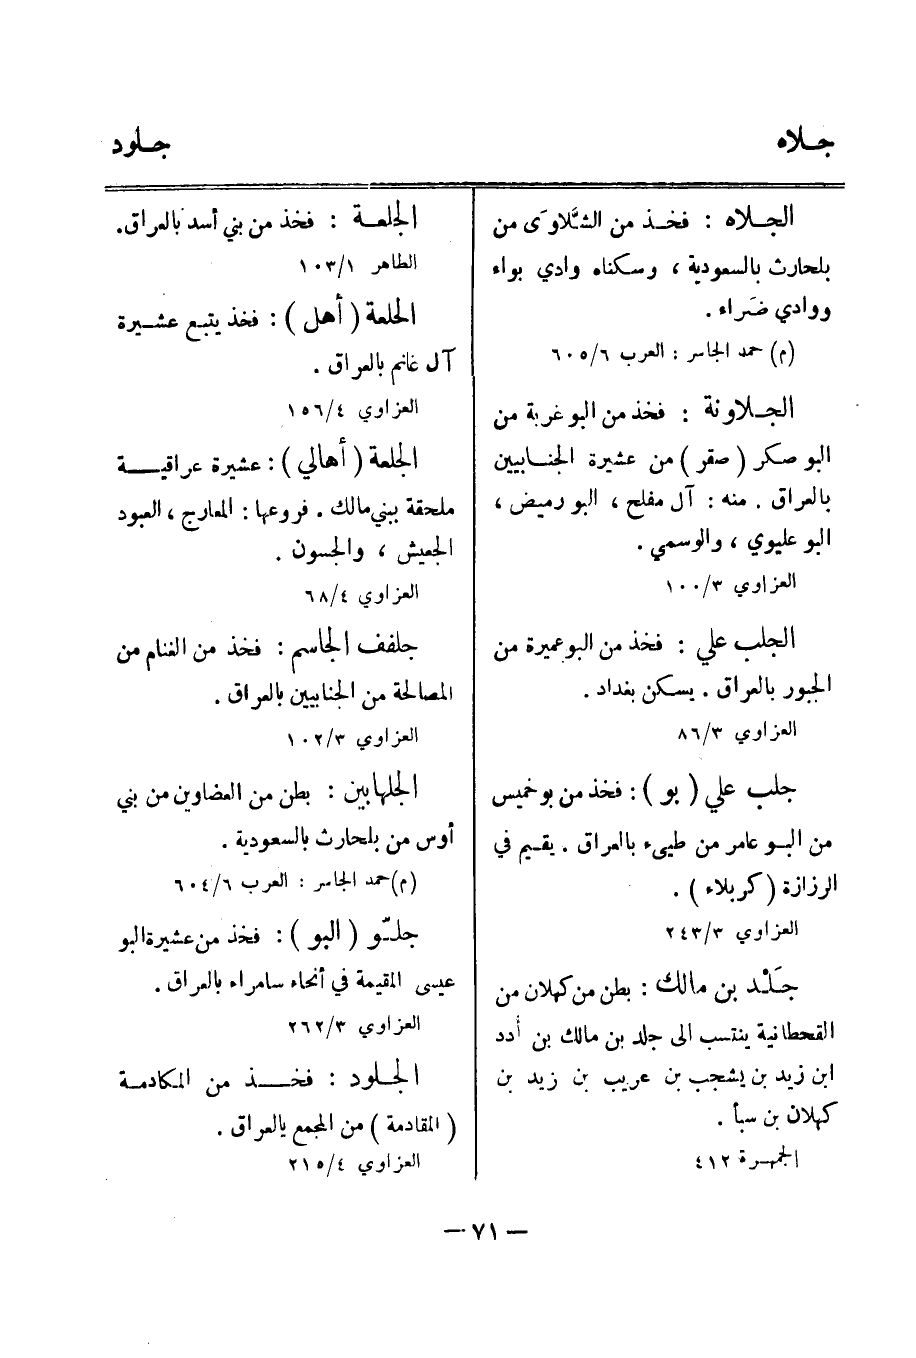 جلاه
جلود
الجلاه : فخذ من الشَّلاوَى من
بلحارث بالسعودية ، وسكناه وادي بواء
ووادي ضَراء .
(م) حمد الجاسر : العرب ٦/‏٦٠٥
الجلاونة : فخذ من البو غربة من
البو صكر ( صقر ) من عشيرة الجنابيين
بالعراق . منه : آل مفلح ، البو رميض ،
البو عليوي ، والوسمي .
العزاوي ٣/‏١٠٠
الجلب علي : فخذ من البو عميرة من
الجبور بالعراق . يسكن بغداد .
العزاوي ٣/‏٨٦
جلب علي ( بو ) : فخذ من بو خميس
من البو عامر من طيىء بالعراق . يقيم في
الرزازة ( كربلاء ) .
العزاوي ٣/‏٢٤٣
جَلْد بن مالك : بطن من كهلان من
القحطانية ينتسب الى جلد بن مالك بن أدد
ابن زيد بن يشجب بن عريب بن زيد بن
كهلان بن سبأ .
الجمهرة ٤١٢
الجلعة : فخذ من بني أسد بالعراق .
الطاهر ١/‏١٠٣
الجلعة ( أهل ) : فخذ يتبع عشيرة
آل غانم بالعراق .
العزاوي ٤/‏١٥٦
الجلعة ( أهالي ) : عشيرة عراقية
ملحقة ببني مالك . فروعها : المعارج ، العبود
الجعيش ، والجسون .
العزاوي ٤/‏٦٨
جلفف الجاسم : فخذ من الغنام من
المصالحة من الجنابيين بالعراق .
العزاوي ٣/‏١٠٢
الجلهابين : بطن من العضاوين من بني
أوس من بلحارث بالسعودية .
(م) حمد الجاسر : العرب ٦/‏٦٠٤
جلّو ( البو ) : فخذ من عشيرة البو
عيسى المقيمة في أنحاء سامراء بالعراق .
العزاوي ٣/‏٢٦٢
الجلود : فخذ من المكادمة
( المقادمة ) من المجمع بالعراق .
العزاوي ٤/‏٢١٥
— ٧١ —